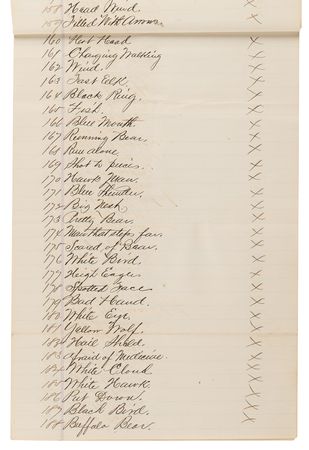 158 Head Wind. X
159 Filled With Arrows X
160 Red Head X
161 Changing Walking X
162 Wind. X
163 Fast Elk. X
164 Black Ring. X
165 Fish X
166 Blue Mouth. X
167 Running Bear. X
168 Runs alone X
169 Shot to pieces. X
170 Hawk Man. X
171 Blue Thunder. X
172 Big Neck X
173 Pretty Bear. X
174 Man that steps far. X
175 Scared of Bear. X
176 White Bird. X
177 High Eagle X
178 Spotted Face X
179 Bad Hand. X
180 White Eye. X
181 Yellow Wolf. X
182 Hail Shield. X
183 Afraid of Medicine. X
184 White Cloud X
185 White Hawk. X
186 Put Down. X
187 Black Bird. X
188 Buffalo Bear. X